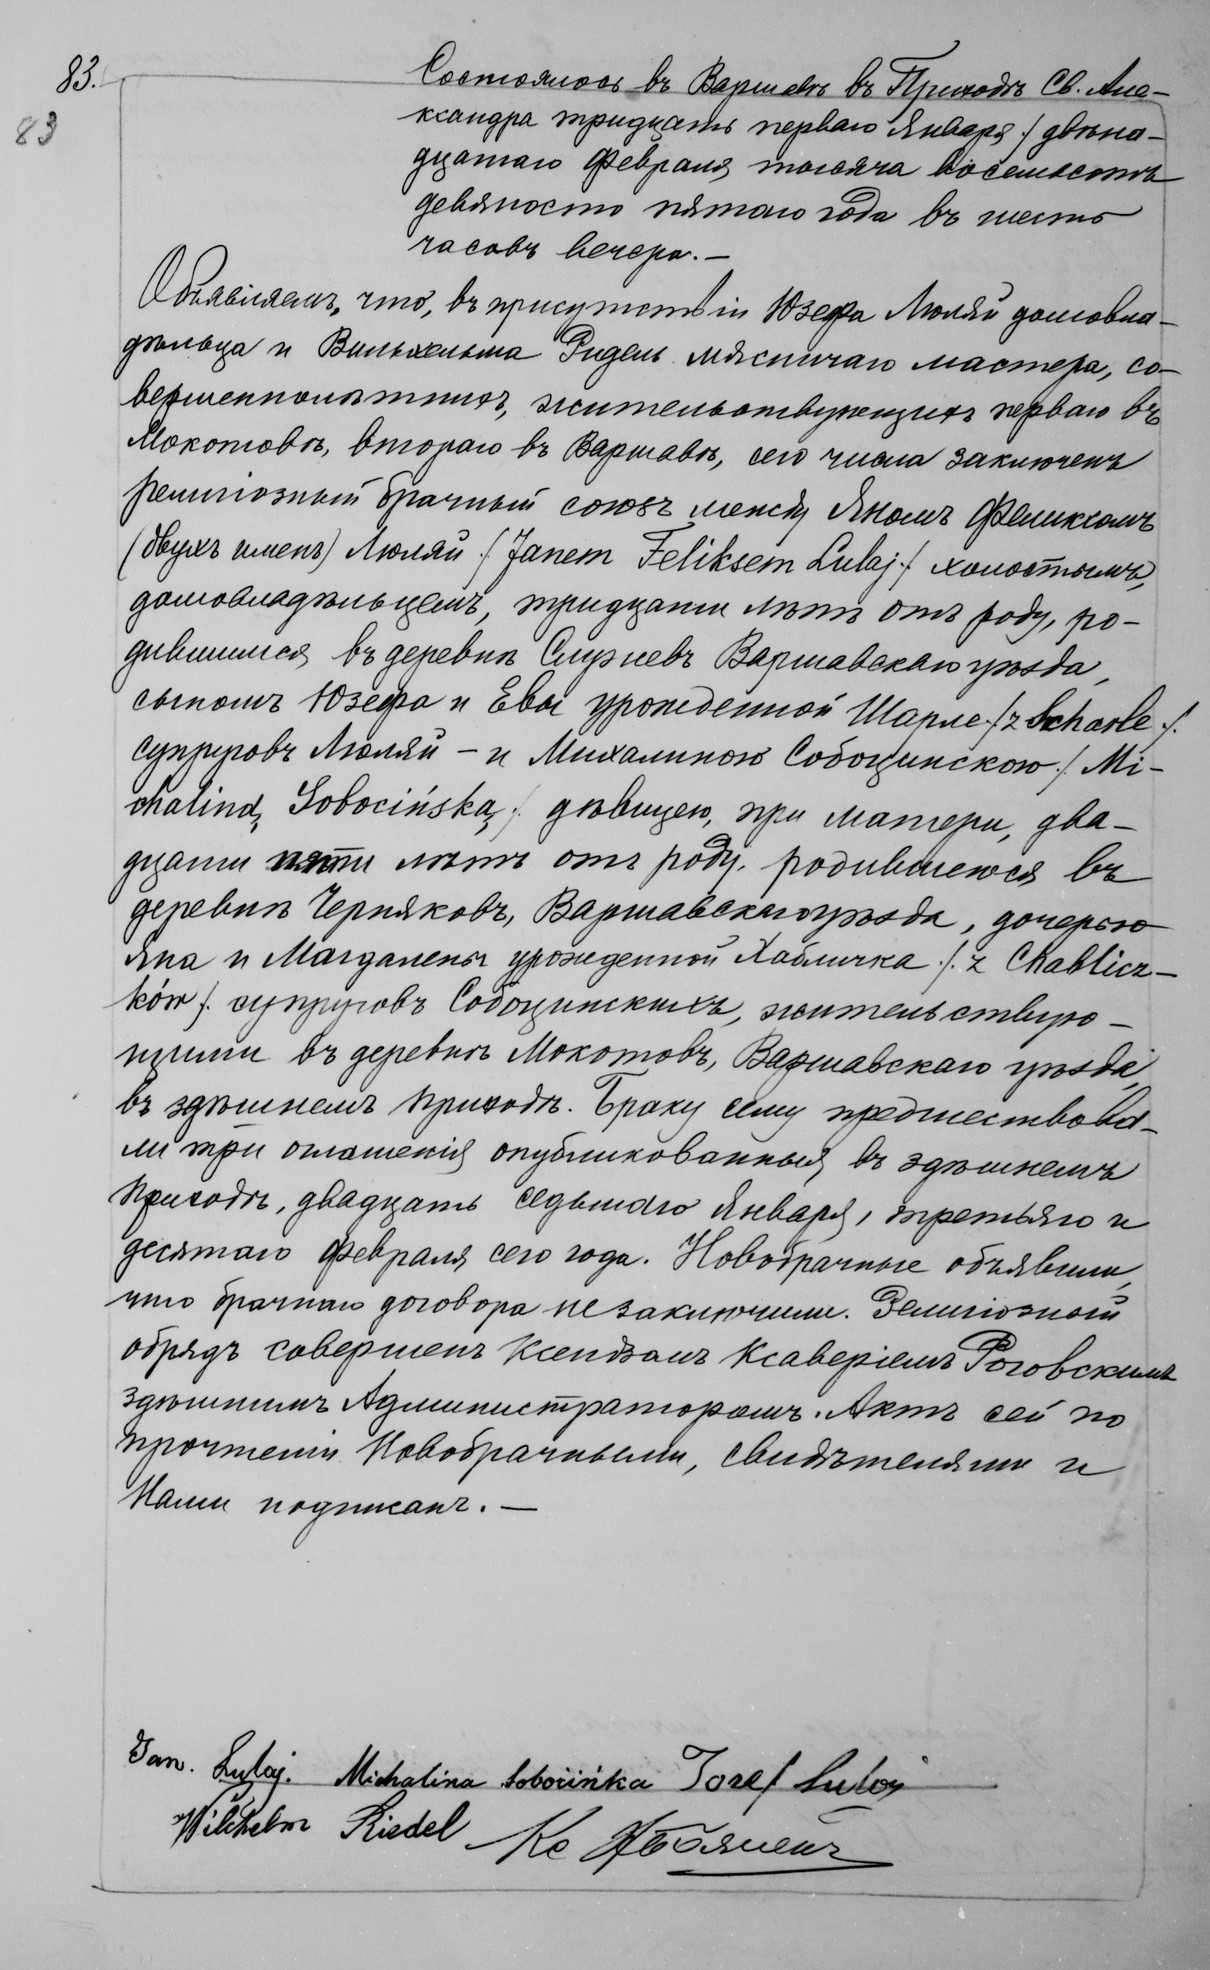 83.
83
Состоялось въ Варшавѣ въ Приходѣ Св. Але-
ксандра тридцать перваго Января /: двѣна-
дцатаго Февраля, тысяча восемьсотъ
девяносто пятаго года въ шесть
часовъ вечера. —
Объявляемъ, что, въ присутствіи Юзефа Люляй домовла-
дѣльца и Вильхельма Ридель мясничаго мастера, со-
вершеннолѣтнихъ, жительствующихъ перваго въ
Мокотовѣ, втораго въ Варшавѣ, сего числа заключенъ
религіозный брачный союзъ между Яномъ Феликсомъ
(двухъ именъ) Люляй /: Janem Feliksem Lulaj :/ холостымъ,
домовладѣльцемъ, тридцати лѣтъ отъ роду, ро-
дившимся въ деревнѣ Служевъ Варшавскаго уѣзда,
сыномъ Юзефа и Евы урожденной Шарле /: z Scharle :/.
супруговъ Люляй — и Михалиною Собоцинскою /: Mi-
chaliną Sobocińską :/ дѣвицею, при матери, два-
дцати пяти лѣтъ отъ роду, родившеюся въ
деревнѣ Черняковъ, Варшавскаго уѣзда, дочерью
Яна и Магдалены урожденной Хабличка /: z Chablicz-
ków :/ супруговъ Собоцинскихъ, жительствую-
щими въ деревнѣ Мокотовъ, Варшавскаго уѣзда,
въ здѣшнемъ приходѣ. Браку сему предшествова-
ли три оглашенія опубликованныя, въ здѣшнемъ
приходѣ, двадцать седьмаго Января, третьяго и
десятаго Февраля, сего года. Новобрачные объявили,
что брачнаго договора не заключили. Религіозный
обрядъ совершенъ Ксендзомъ Ксаверіемъ Роговскимъ
здѣшнимъ Администраторомъ. Актъ сей по
прочтеніи Новобрачными, свидѣтелями и
Нами подписанъ. —
Jan. Lulaj. Michalina Sobocińka Jozef Lulaj
Wilchelm Riedel Кс